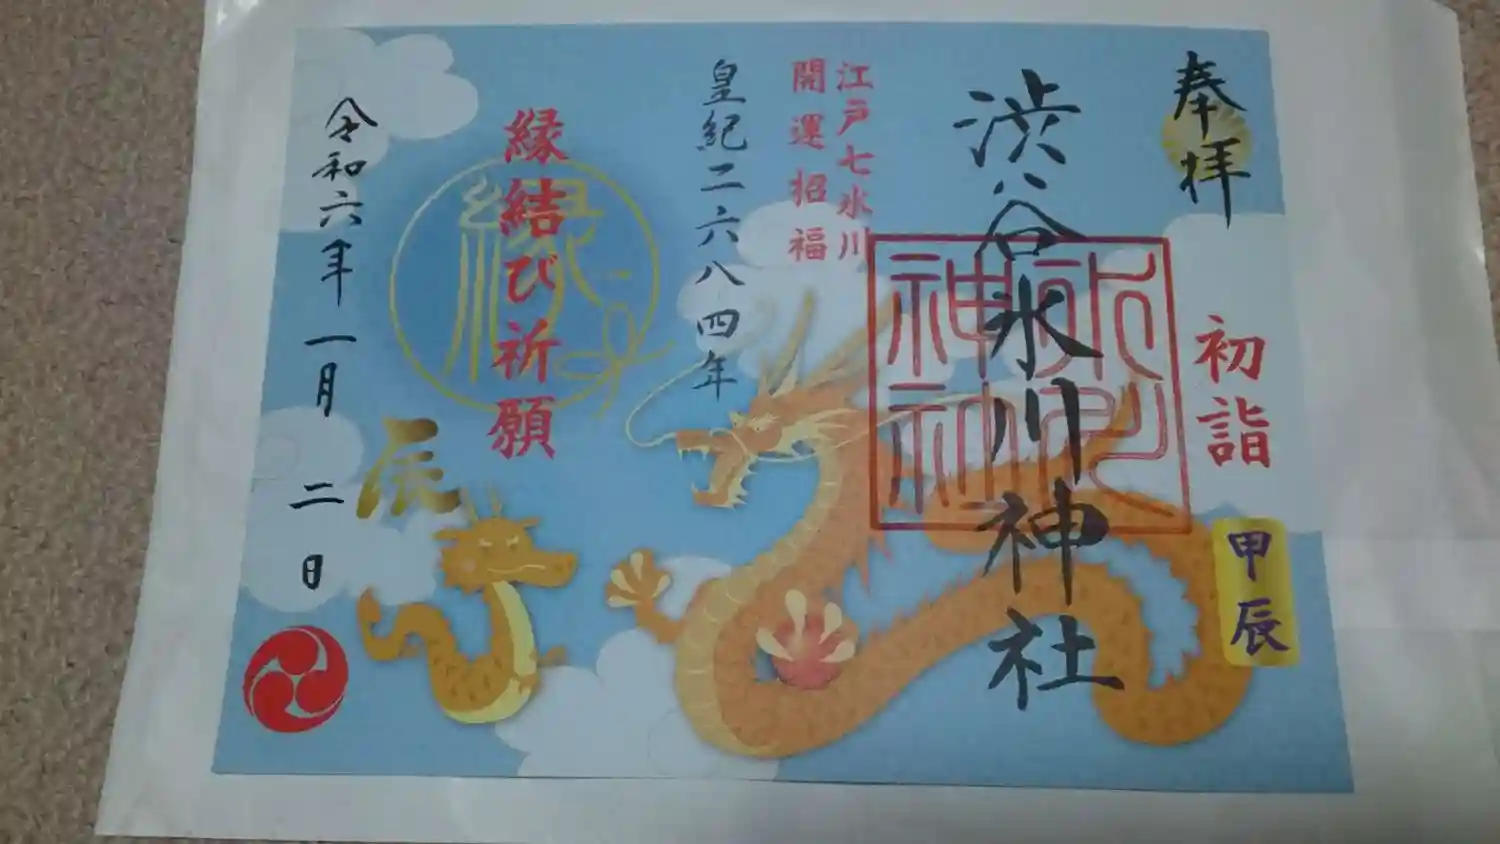 奉拝
初詣
甲辰
渋谷氷川神社
江戸七氷川
開運招福
皇紀二六八四年
縁結び祈願
縁
辰
令和六年一月二日